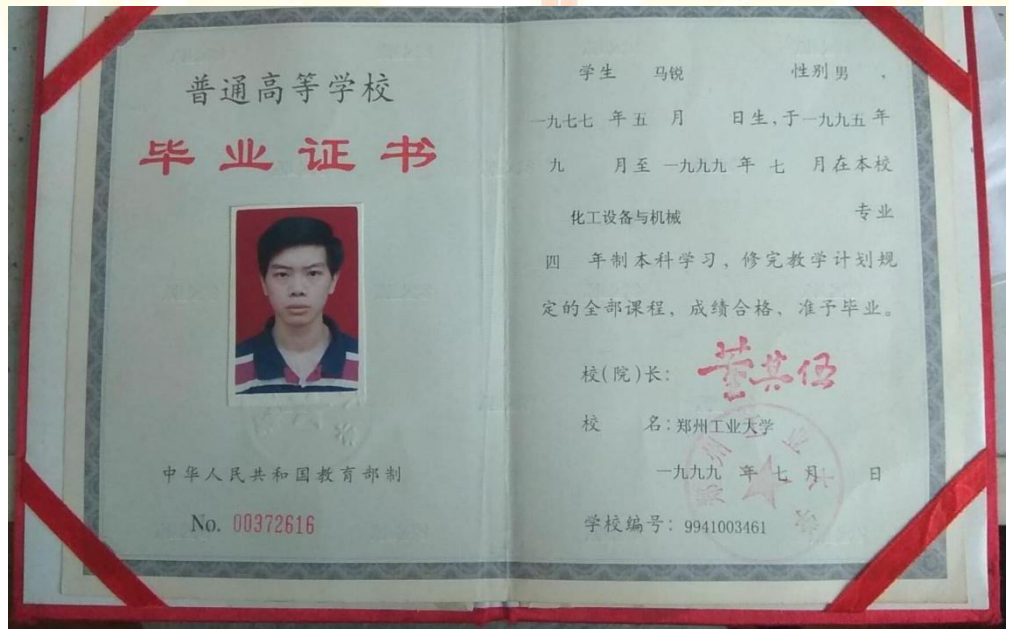 普通高等学校
毕业证书
中华人民共和国教育部制
No. 00372616
学生 马锐 性别 男 ，
一九七七 年 五 月 日生，于一九九五 年
九 月至 一九九九 年 七 月在本校
化工设备与机械 专业
四 年制本科学习，修完教学计划规
定的全部课程，成绩合格，准予毕业。
校（院）长： 董其伍
校 名：郑州工业大学
一九九九 年 七 月 日
学校编号：9941003461